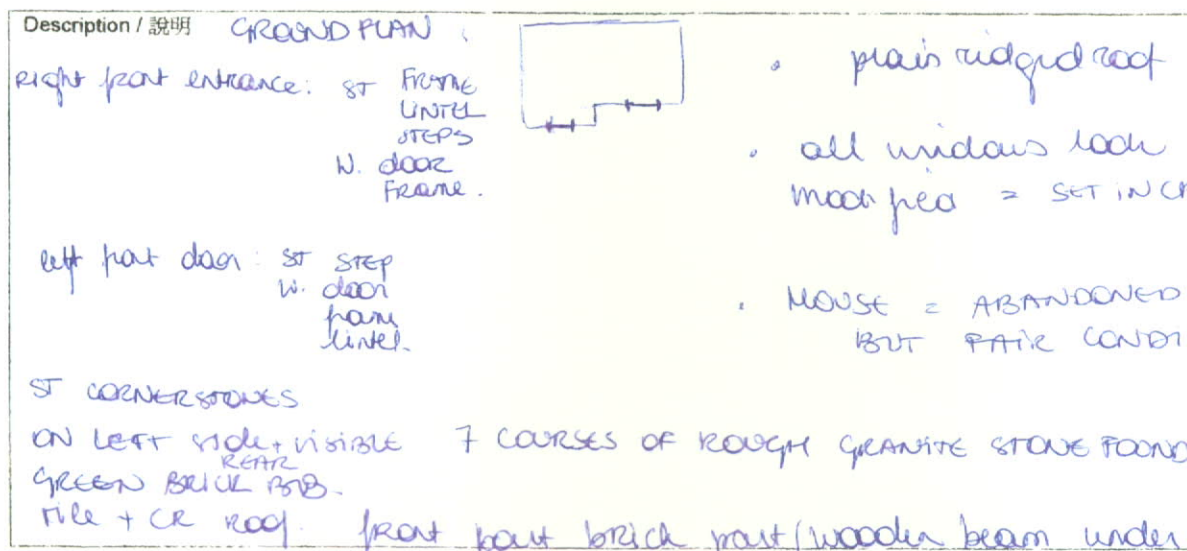 Description / 說明 GROUND PLAN :
Right front entrance: ST FRAME
LINTEL
STEPS
W. door
FRAME.
left front door: ST STEP
W. door
frame
lintel.
ST CORNERSTONES
ON LEFT side + VISIBLE 7 COURSES OF ROUGH GRANITE STONE FOUND
REAR
GREEN BRICK
Tile + CR roof. front brick /wooden beam under
• plain ridged roof
• all windows look
modified = SET IN
• HOUSE = ABANDONED
BUT FAIR CONDI